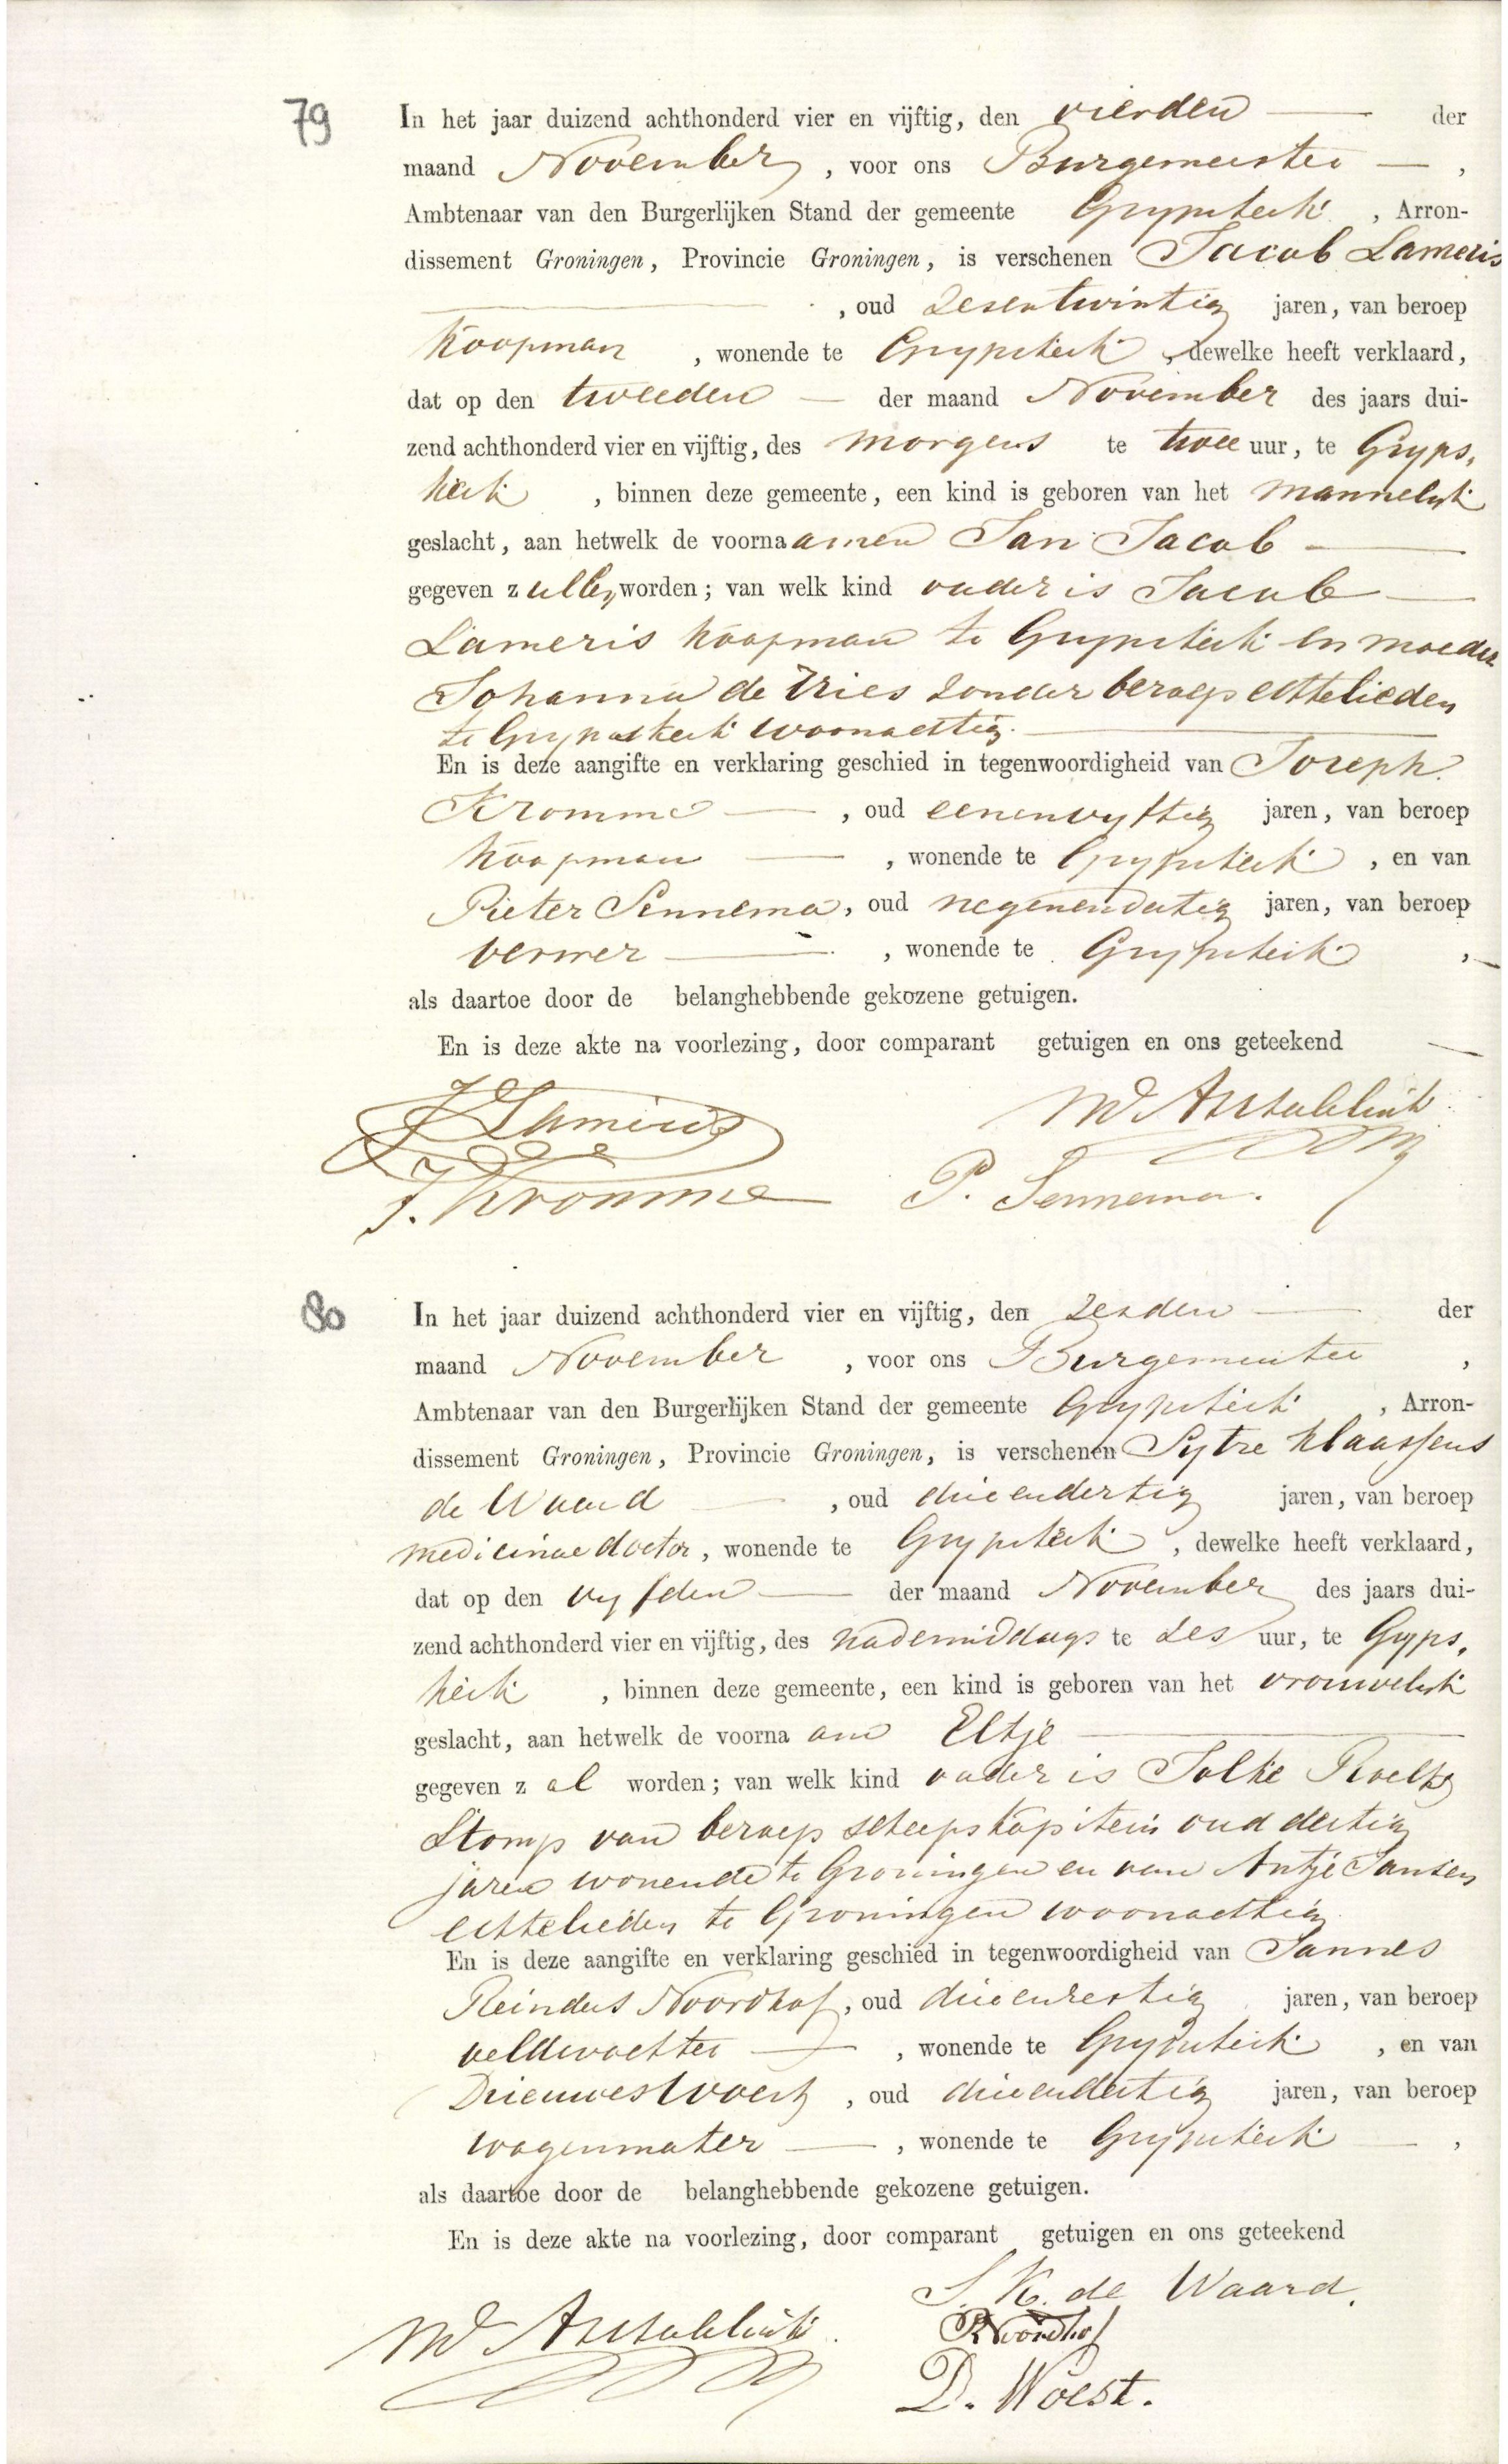 79
In het jaar duizend achthonderd vier en vijftig, den vierden der
maand November, voor ons Burgemeester,
Ambtenaar van den Burgerlijken Stand der gemeente Grypskerk, Arron-
dissement Groningen, Provincie Groningen, is verschenen Jacob Lameris
, oud zesentwintig jaren, van beroep
Koopman, wonende te Grypskerk, dewelke heeft verklaard,
dat op den tweeden der maand November des jaars dui-
zend achthonderd vier en vijftig, des morgens te twee uur, te Gryps,
kerk, binnen deze gemeente, een kind is geboren van het mannelyk
geslacht, aan hetwelk de voornaamen Jan Jacob
gegeven zullen worden; van welk kind vader is Jacob
Lameris koopman te Grypskerk en moeder
Johanna de Vries zonder beroep echtelieden
te Grypskerk woonachtig.
En is deze aangifte en verklaring geschied in tegenwoordigheid van Joseph
Kromme, oud eenenvyftig jaren, van beroep
Koopman, wonende te Grypskerk, en van
Pieter Sennema, oud negenendertig jaren, van beroep
verwer, wonende te Grypskerk,
als daartoe door de belanghebbende gekozene getuigen.
En is deze akte na voorlezing, door comparant getuigen en ons geteekend
J Lameris
J. Kromme P. Sennema.
80
In het jaar duizend achthonderd vier en vijftig, den zesden der
maand November, voor ons Burgemeester,
Ambtenaar van den Burgerlijken Stand der gemeente Grypskerk, Arron-
dissement Groningen, Provincie Groningen, is verschenen Sytze Klaassens
de Waard, oud drieendertig jaren, van beroep
medicinae doctor, wonende te Grypskerk, dewelke heeft verklaard,
dat op den vyfden der maand November des jaars dui-
zend achthonderd vier en vijftig, des nademiddags te zes uur, te Gryps,
kerk, binnen deze gemeente, een kind is geboren van het vrouwelyk
geslacht, aan hetwelk de voornaam Eltje
gegeven zal worden; van welk kind vader is Folke Roelfs
Stomp van beroep scheepskapitein oud dertig
jaren wonende te Groningen en van Antje Jansen
echtelieden te Groningen woonachtig
En is deze aangifte en verklaring geschied in tegenwoordigheid van Jannes
Reinders Noordhof, oud drieenzestig jaren, van beroep
veldwachter, wonende te Grypskerk, en van
Drieuwes Woest, oud drieendertig jaren, van beroep
wagenmaker, wonende te Grypskerk,
als daartoe door de belanghebbende gekozene getuigen.
En is deze akte na voorlezing, door comparant getuigen en ons geteekend
S. K. de Waard.
Noordhof
D. Woest.